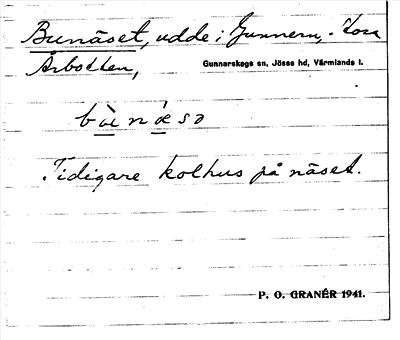 Bunäset, udde i Gunnern, Stora
Årbotten,
Gunnarskogs sn, Jösse hd, Värmlands l.
Tidigare kolhus på näset.
P. O. GRANÉR 1941.